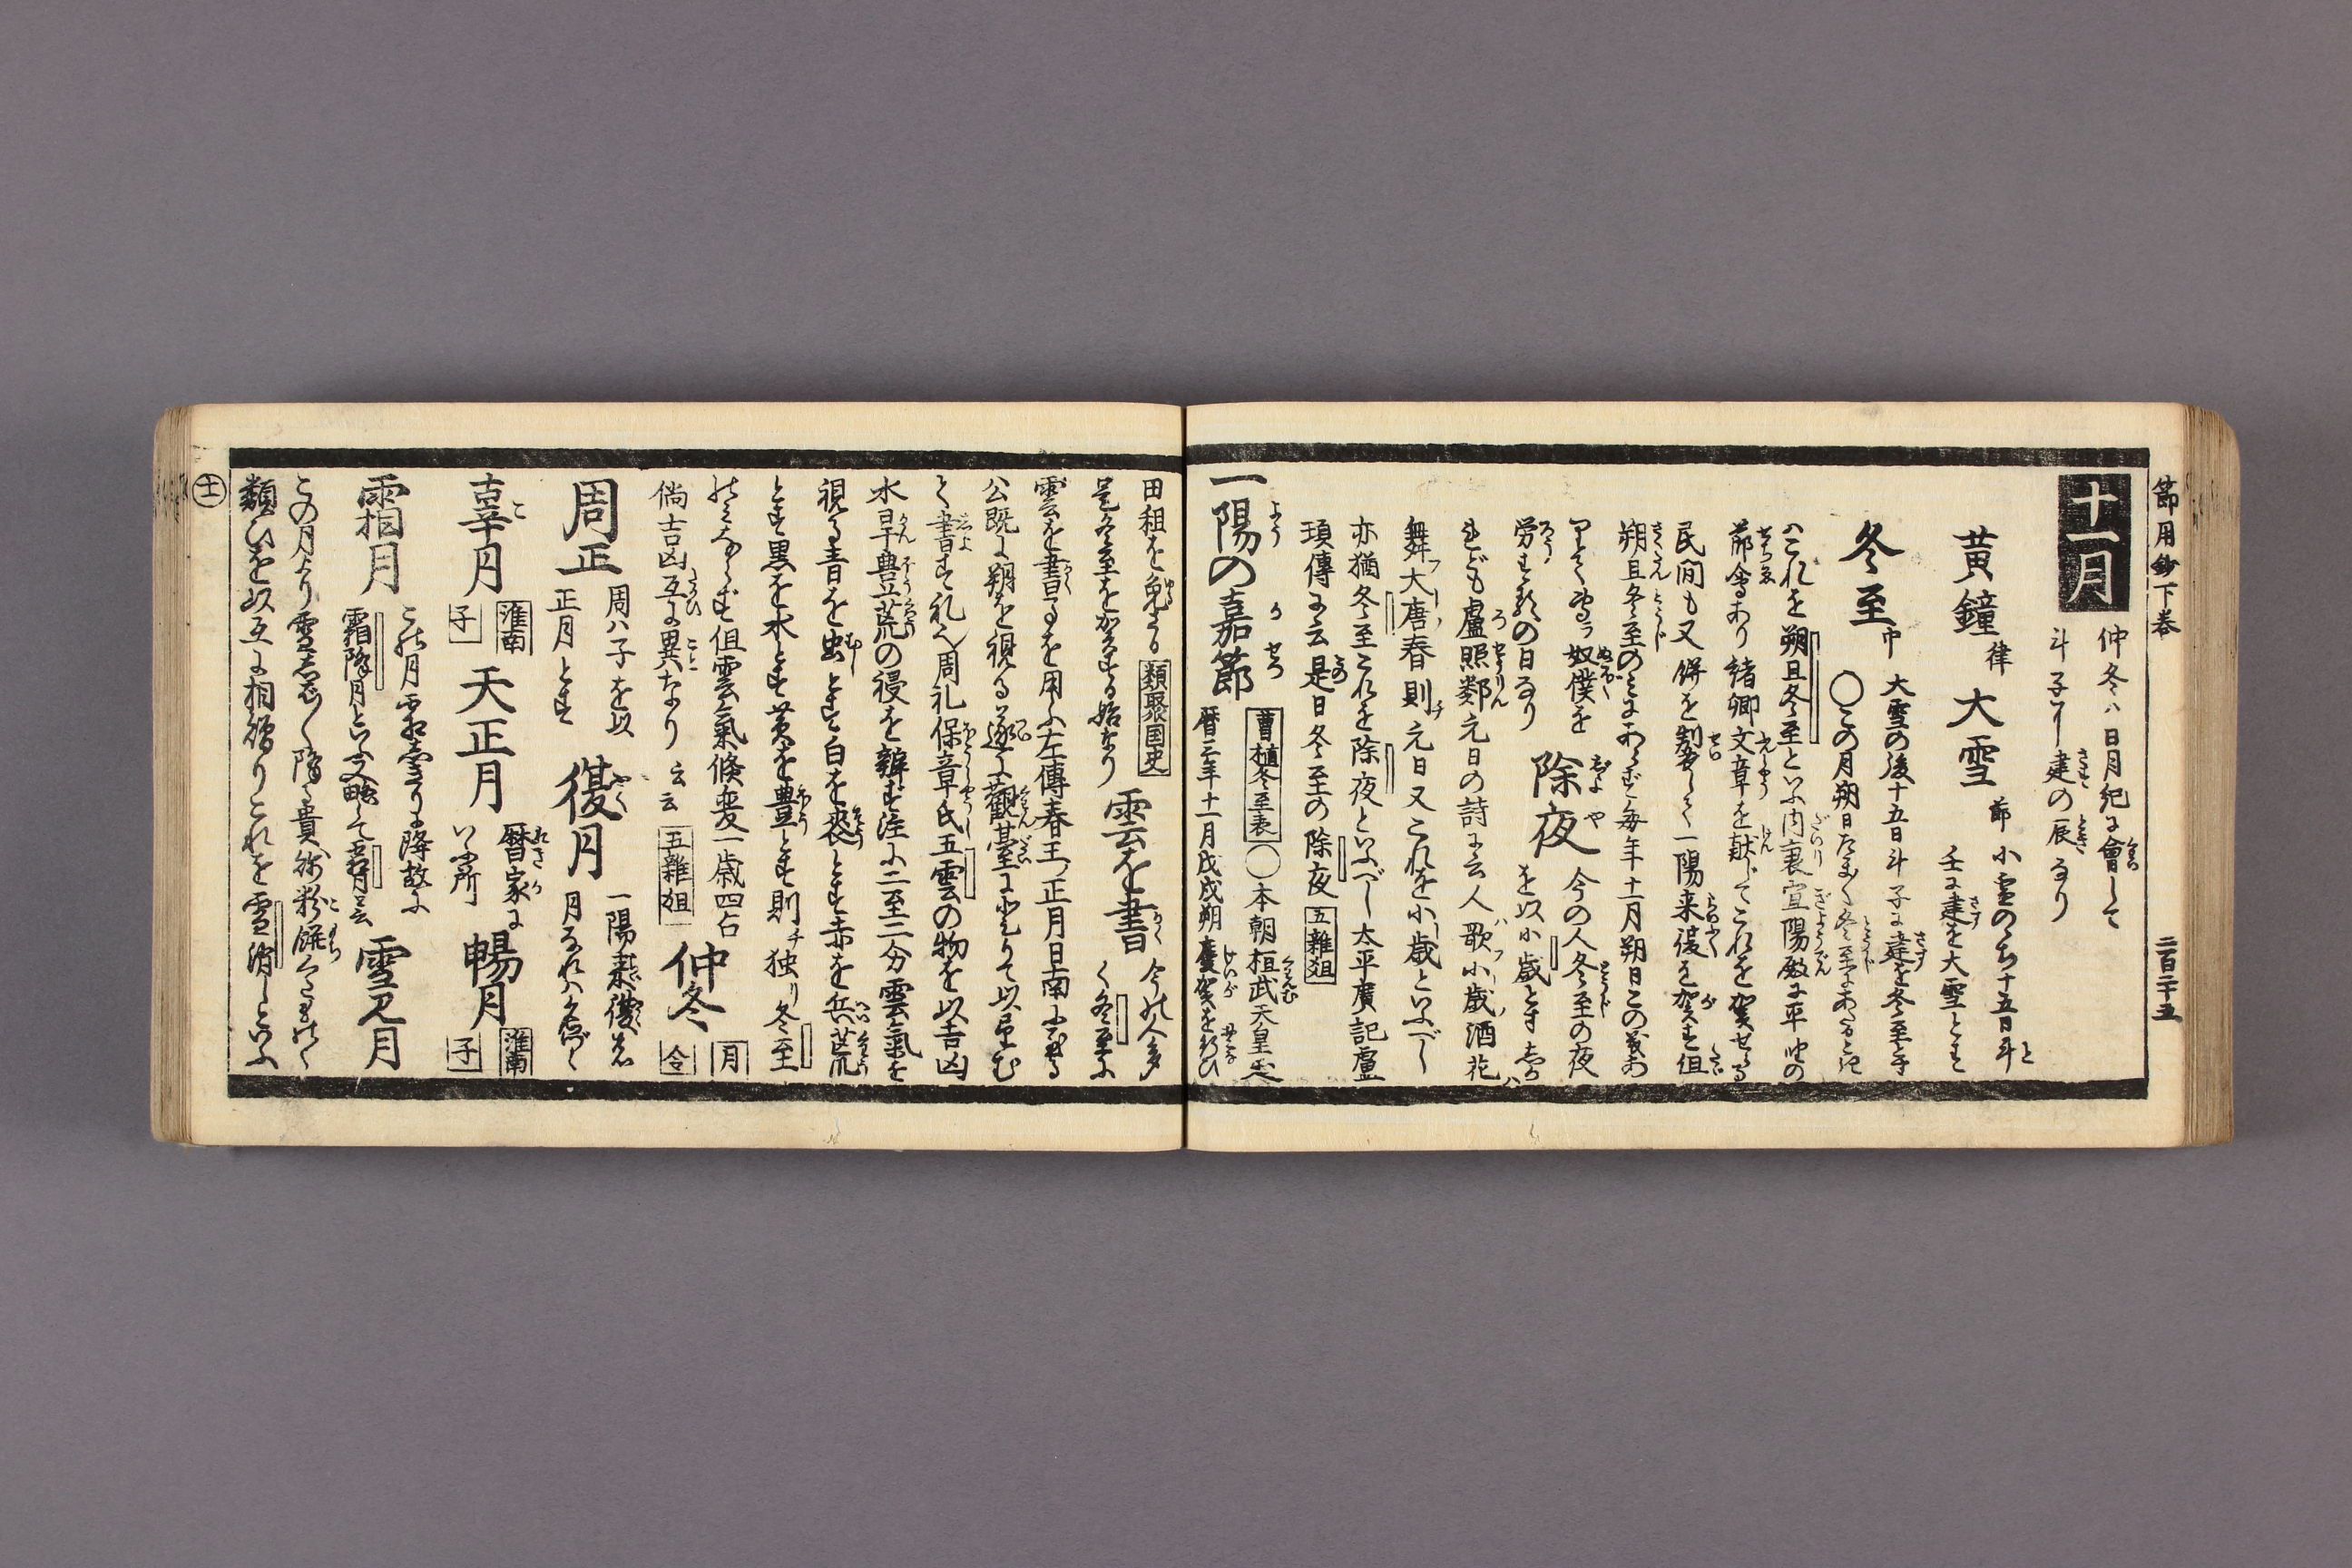 節用鈔下巻 二百二十五
十一月 仲冬ハ日月紀に會して
斗子に建の辰なり
黄鐘 律 大雪 節 小雪のゝち十五日斗
壬に建を大雪とす
冬至 中 大雪の後十五日斗子に建を冬至とす
〇この月朔日たま〱冬至にあたる
ハこれを朔旦冬至といふ内裏宜陽殿に平座の
節會あり緒卿文章を献じてこれを賀せる
民間も又餅を製して一陽来復を賀す但
朔旦冬至のミにあらず毎年十一月朔日この義あ
奴僕を
労する の日なり 除夜 今の人冬至の夜
を以小歳とす
れども盧照鄰元日の詩に云人歌小歳酒花
舞大唐春則元日又これを小歳といふべし
亦猶冬至これを除夜といふべし太平廣記盧
頊傳に云是日冬至の除夜 五雜俎
一陽の嘉節 曹植冬至表 〇本朝桓武天皇延
暦三年十一月戊戌朔慶賀を行ひ
田租を免ずる 類聚国史
是冬至を賀する始なり 雲を書 今の人多
く冬至に
雲を書るを用ふ左傳春王正月日南
公既に朔を視る遂に觀臺に登りて以望む
て書す礼也周礼保章氏五雲の物を以吉凶
水旱豊荒の祲を辨ず注に二至二分雲氣を
視る青を虫とす白を喪とす赤を兵荒
とす黒を水とす黄を豊とす則独り冬至
のミならず但雲氣倏変一歳四占
倘吉凶互に異なり云云 五雜俎 仲冬 月令
周正 周ハ子を以
正月とす 復月 一陽来復
月なれハ名づく
辜月 淮南子 天正月 暦家に
いふ所 暢月 淮南子
霜月 この月霜 降故に
霜降月といふ略して霜月云 雪見月
この月より雪 降 貴 粉餅
類ひを以互に相贈りこれを雪消しといふ
十一